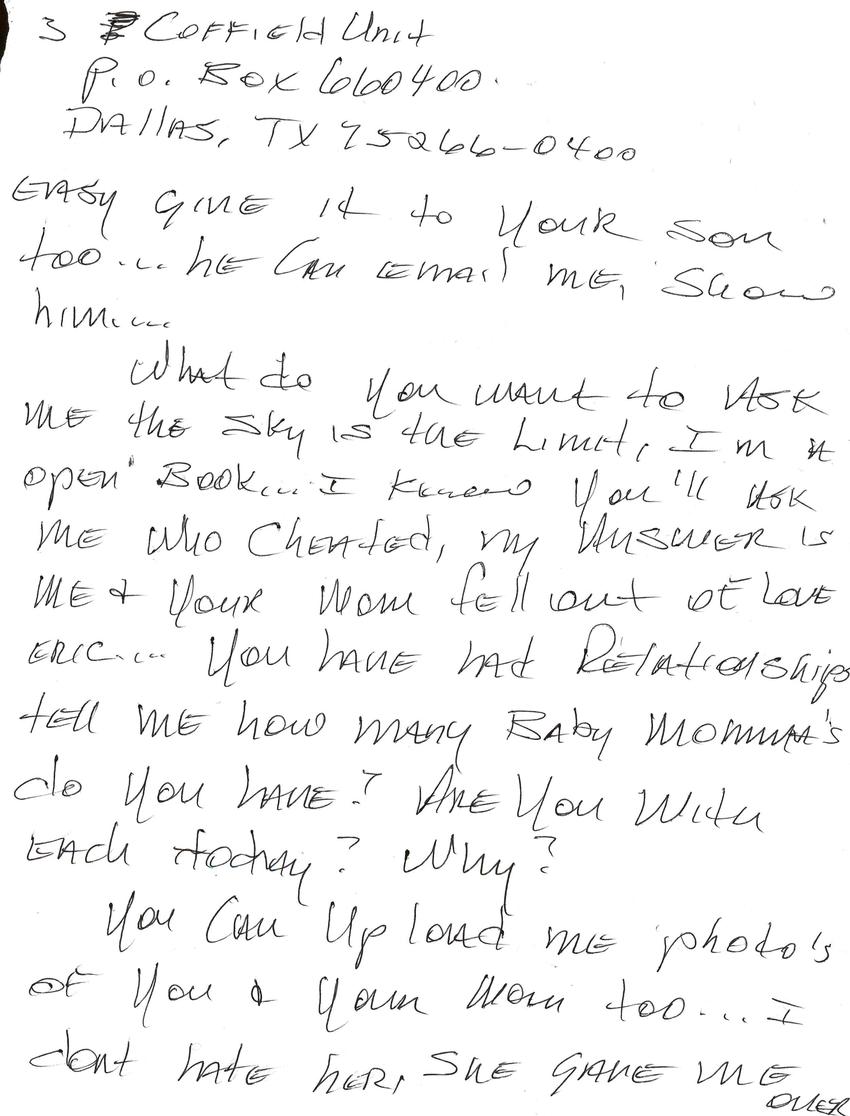 3 Coffield Unit
P.O. Box 660400.
Dallas, TX 75266-0400
Easy give it to your son
too.... he can email me, show
him....
What do you want to ask
me the sky is the limit, I'm a
open Book... I know you'll ask
me who cheated, my answer is
me & your mom fell out of love
Eric.... You have had Relationships
tell me how many Baby Momma's
do you have? Are you with
each today? Why?
You can upload me photo's
of you & your mom too.... I
dont hate her, she gave me
over